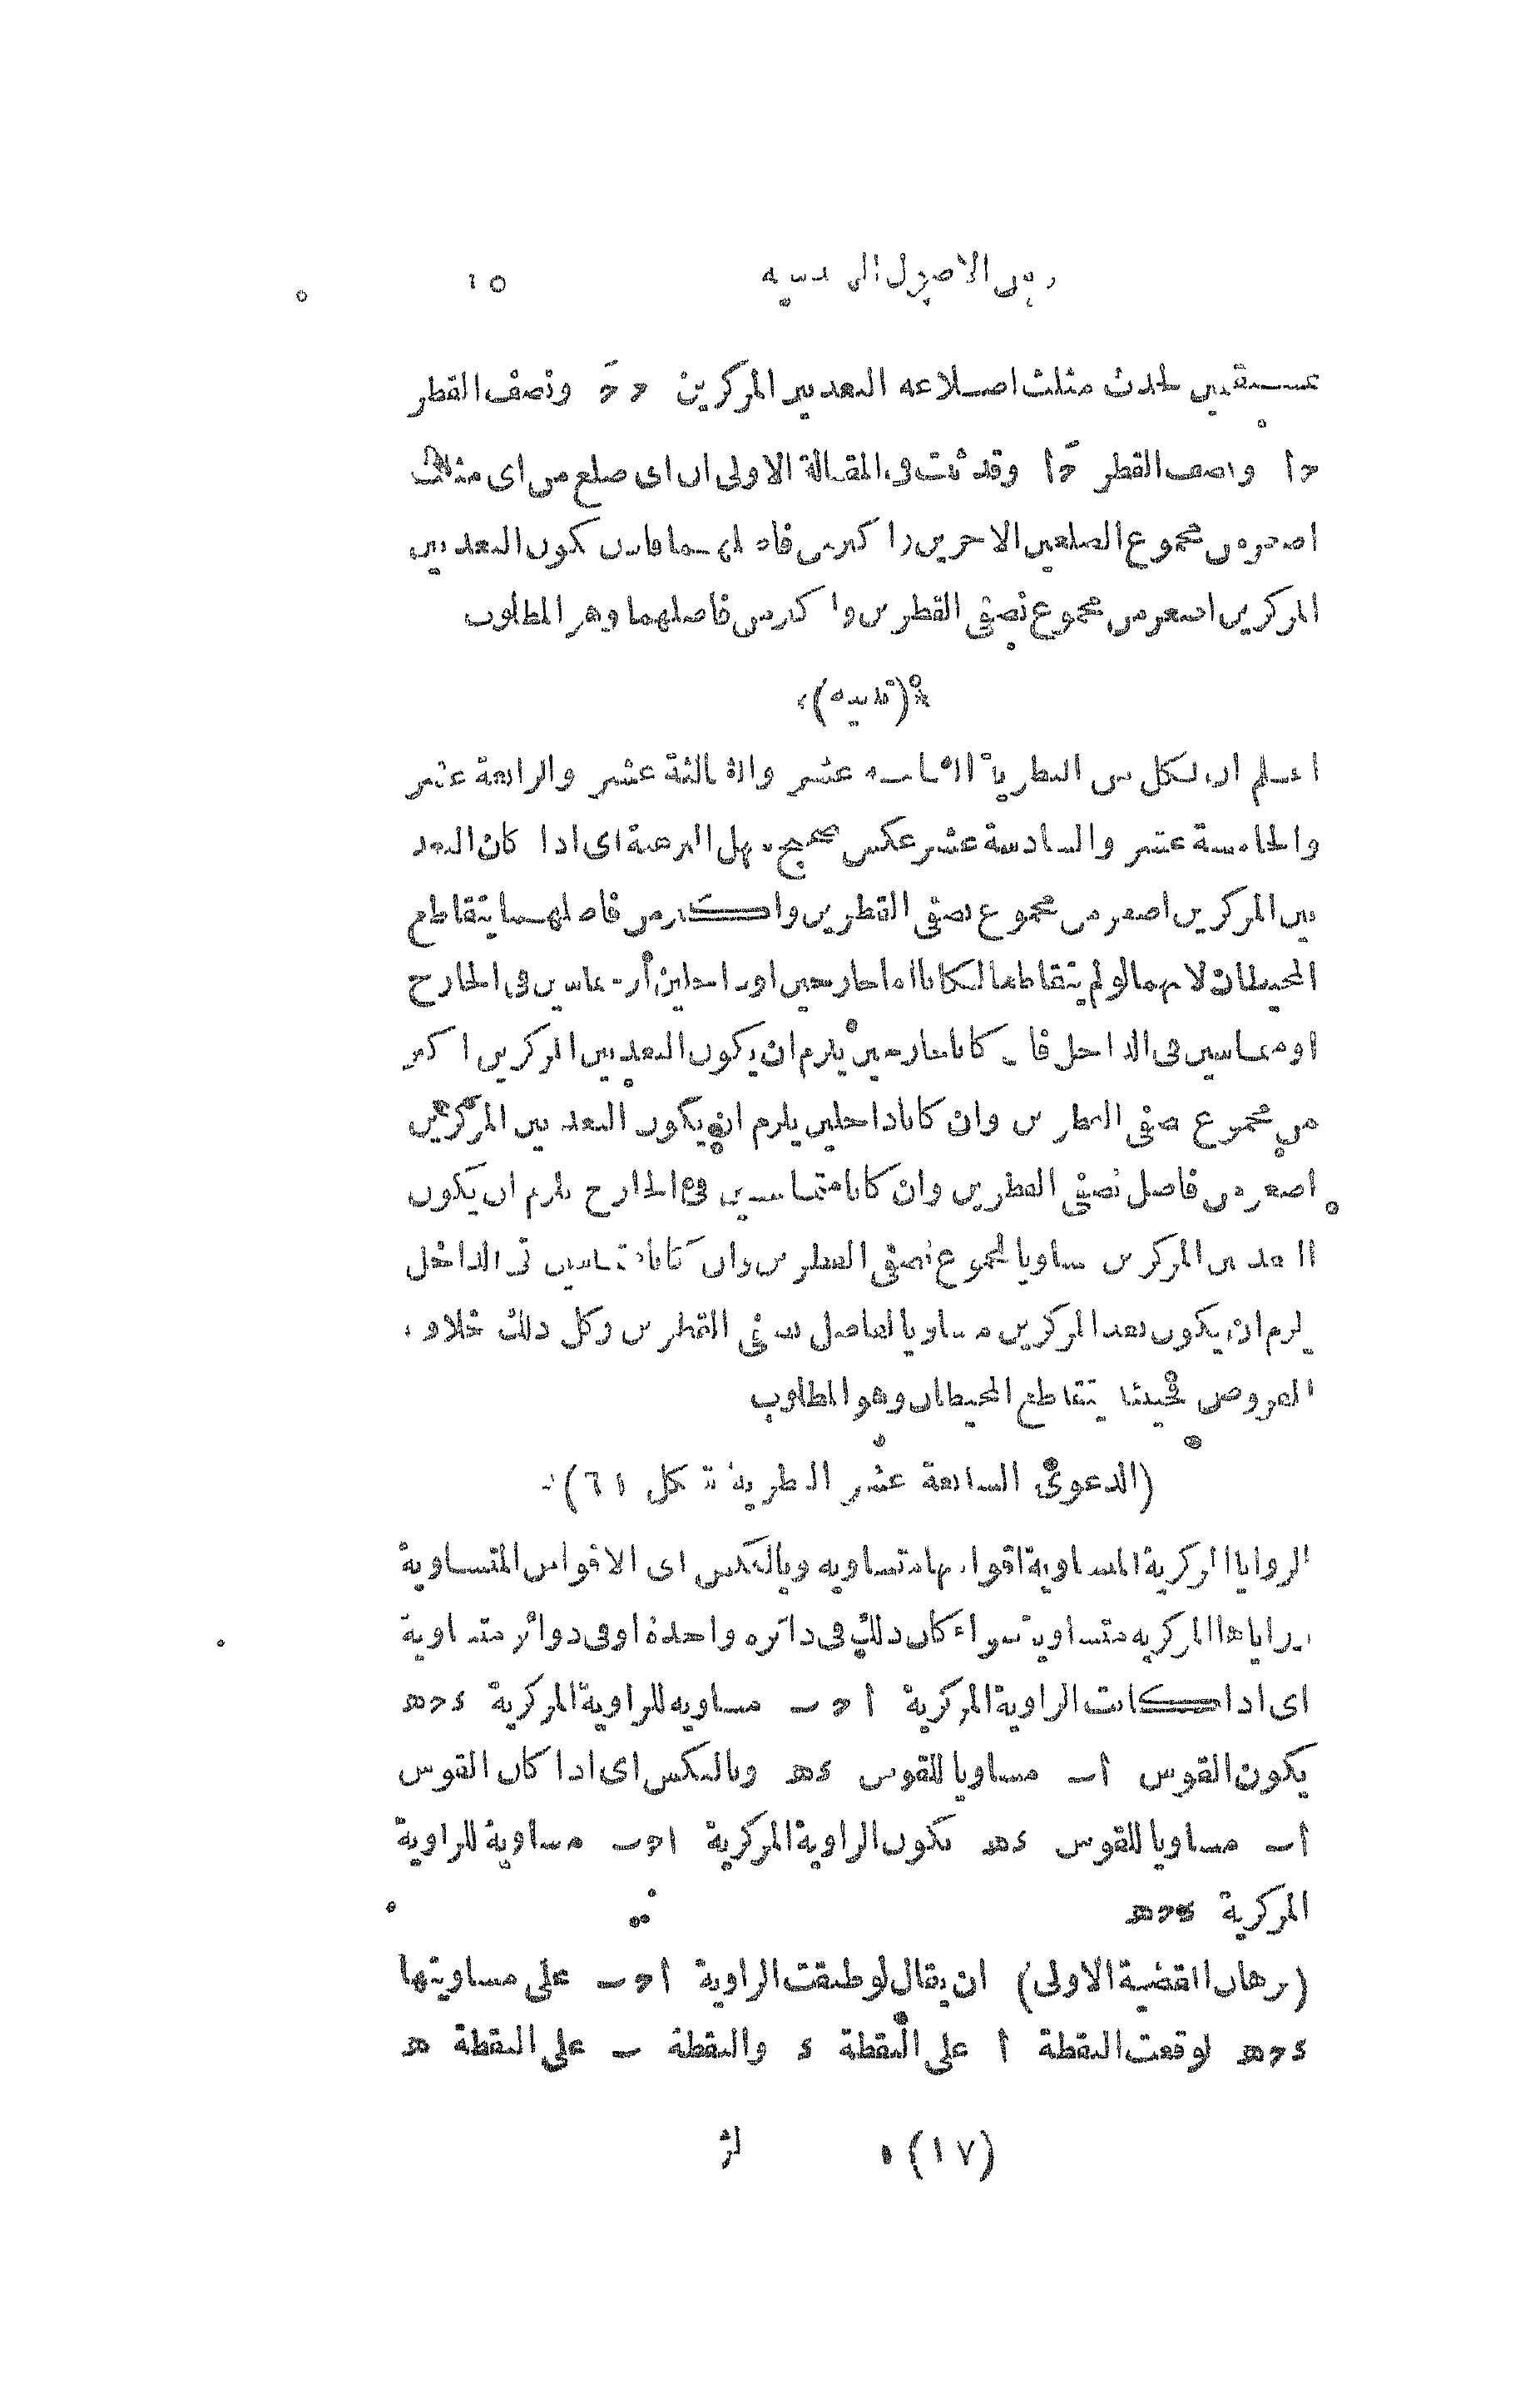 فى الاصول الهندسيه ١٥
مستقيمين لحدث مثلث اضلاعه البعد بين المركزين حَ ح ونصف القطر
ح أ ونصف القطر حَ أ وقد ثبت فى المقالة الاولى ان اى ضلع من اى مثلث
اصغر من مجموع الضلعين الاخرين واكبر من فاضلهما فاذن يكون البعد بين
المركزين اصغر من مجموع نصفى القطرين واكبر من فاضلهما وهو المطلوب
(تنبيه)
اعلم ان لكل من النظريات الثانيه عشر والثالثة عشر والرابعة عشر
والخامسة عشر والسادسة عشر عكس صحيح سهل البرهنة اى اذا كان البعد
بين المركزين اصغر من مجموع نصفى القطرين واكبر من فاضلهما يتقاطع
المحيطان لانهما لو لم يتقاطعا لكانا اما خارجين او داخلين أو متماسين فى الخارج
او متماسين فى الداخل فان كانا خارجين يلزم ان يكون البعد بين المركزين اكبر
من مجموع نصفى القطرين وان كانا داخلين يلزم ان يكون البعد بين المركزين
اصغر من فاضل نصفى القطرين وان كانا متماسين فى الخارج يلزم ان يكون
البعد بين المركزين مساويا لمجموع نصفى القطرين وان كانا متماسين فى الداخل
يلزم ان يكون بعد المركزين مساويا لفاضل نصفى القطرين وكل ذلك خلاف
المفروض فحينئذ يتقاطع المحيطان وهو المطلوب
(الدعوى السابعة عشر النظرية شكل ٦١)
الزوايا المركزية المتساوية اقواسها متساويه وبالعكس اى الاقواس المتساوية
زواياها المركزيه متساوية سواء كان ذلك فى دائره واحدة او فى دوائر متساوية
اى اذا كانت الزاوية المركزية أ ح ب مساويه للزاوية المركزية ء ح ه
يكون القوس أ ب مساويا للقوس ء ه وبالعكس اى اذا كان القوس
أ ب مساويا للقوس ء ه تكون الزاوية المركزية ا ح ب مساوية للزاوية
المركزية ء ح ه
(برهان القضية الاولى) ان يقال لو طبقت الزاوية أ ح ب على مساويتها
ء ح ه لوقعت النقطة أ على النقطة ء والنقطة ب على النقطة ه
(١٧)